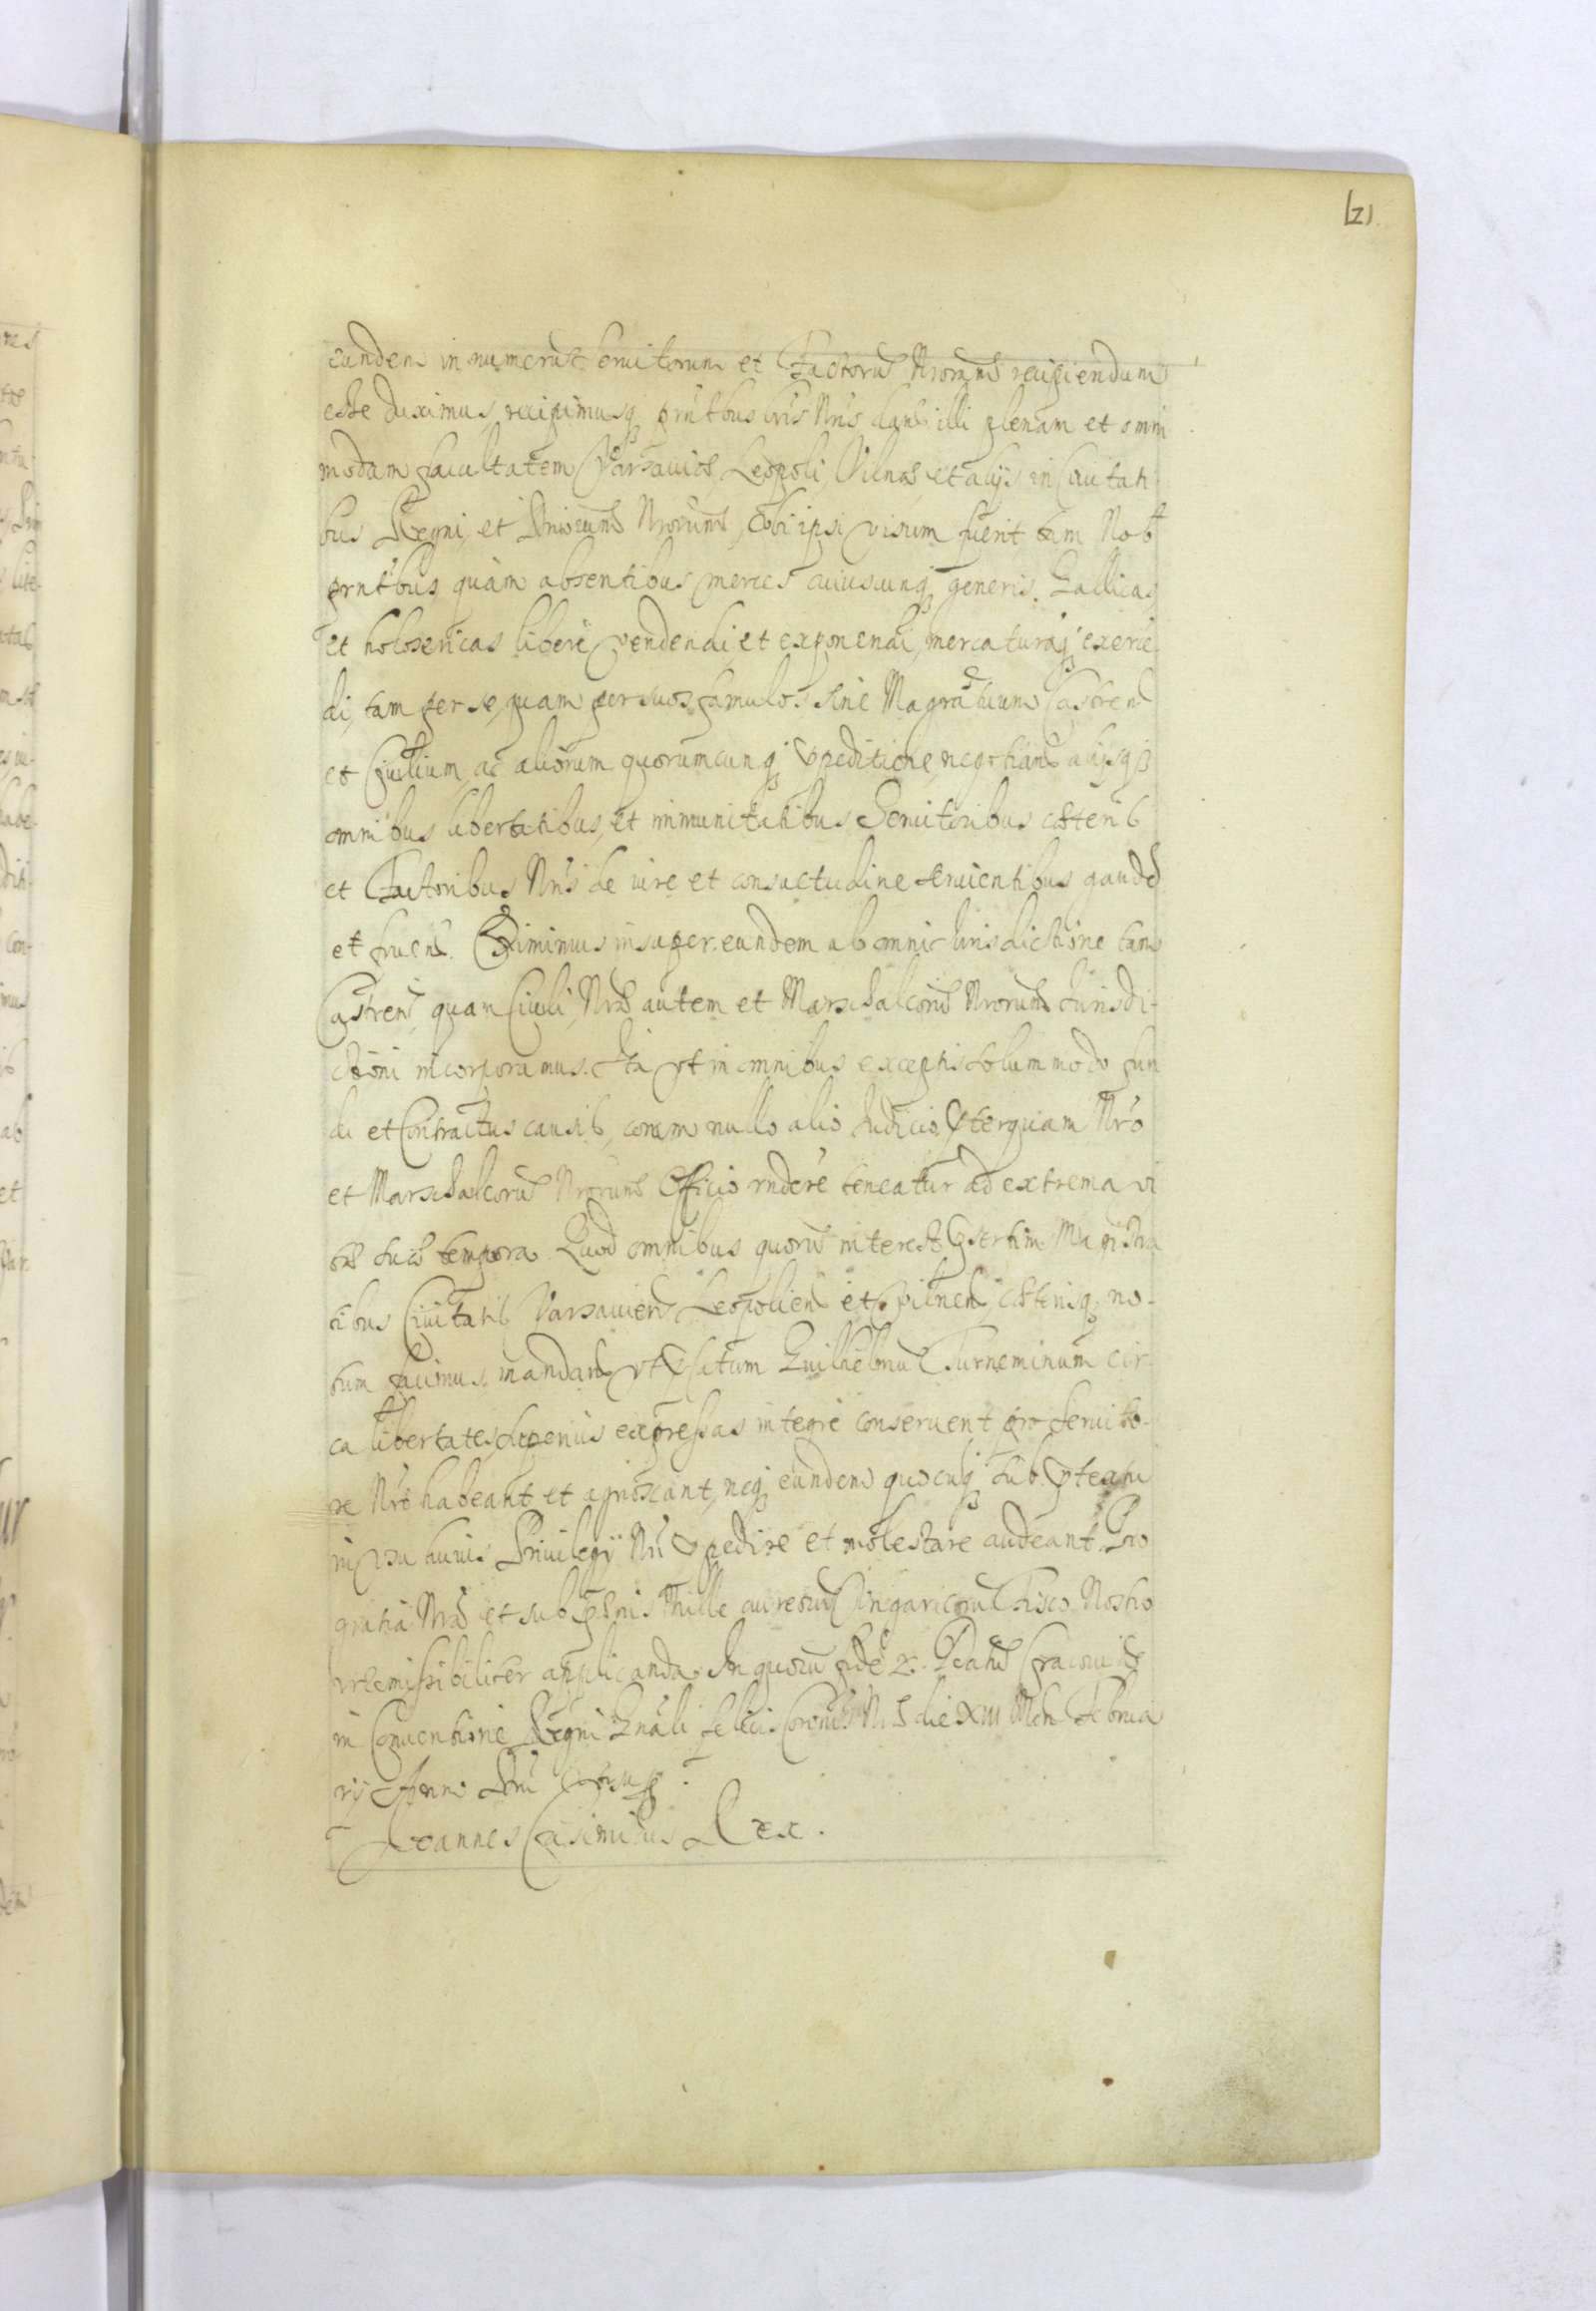 121.
eundem in numerū Seruitorum et Factorū Nrorum recipiendum
esse duximus, recipimusq pntbus lris Nris dans illi plenam et omni
modam facultatem Varsauiæ, Leopoli, Vilnæ, et alijs in Ciuitati
bus Regni, et Dniorum Nrorum, vbi ipsi visum fuerit tam Nob
pntbus quàm absentibus merces cuiuscunq generis, Gallicas,
et holosericas liberè vendendi, et exponendi, mercaturāq exercē
di, tam per se, quam per suos famulos sine Magratuum Castren
et Ciuilium, ac aliorum quorumcunq Impeditione, negotiand alijsq
omnibus libertatibus, et immunitatibus Seruitoribus cæterib
et Factoribus Nris de iure et consuetudine seruientibus gaudd
et fruend. Eximimus insuper eundem ab omni Iurisdictione tam
Castren quam Ciuili, Nræ autem et Marschalcorū Nrorum Iurisdi-
ctioni incorporamus. Ita vt in omnibus exceptis solummodo fun
di et Contractus causib, coram nullo alio Iudicio, præterquam Nro
et Marschalcorū Nrorum Officio rndere teneatur ad extrema vi
tæ suæ tempora. Quod omnibus quorū interest, præsertim Magistra
tibus Ciuitatib Varsauien Leopolien et Vilnen, cæterisq no-
tum facimus, mandans vt præfatum Guilhelmū Turneminum cir
ca libertates superius expressas integrè conseruent pro Seruito-
re Nro habeant et agnoscant, neq eundem quocūq sub prætextu
in vsu huius Priuilegij Nri Impedire et molestare audeant. Pro
gratia Nra et sub pænis Mille aureorū Vngaricorū Fisco Nostro
irremissibiliter applicanda. In quorū fidē &c. Datum Cracouiæ
in Conuentione Regni Gnali felicis Coronis Nræ die XIII Men Februa
rij Anno Dni
Joannes Casimirus Rex.